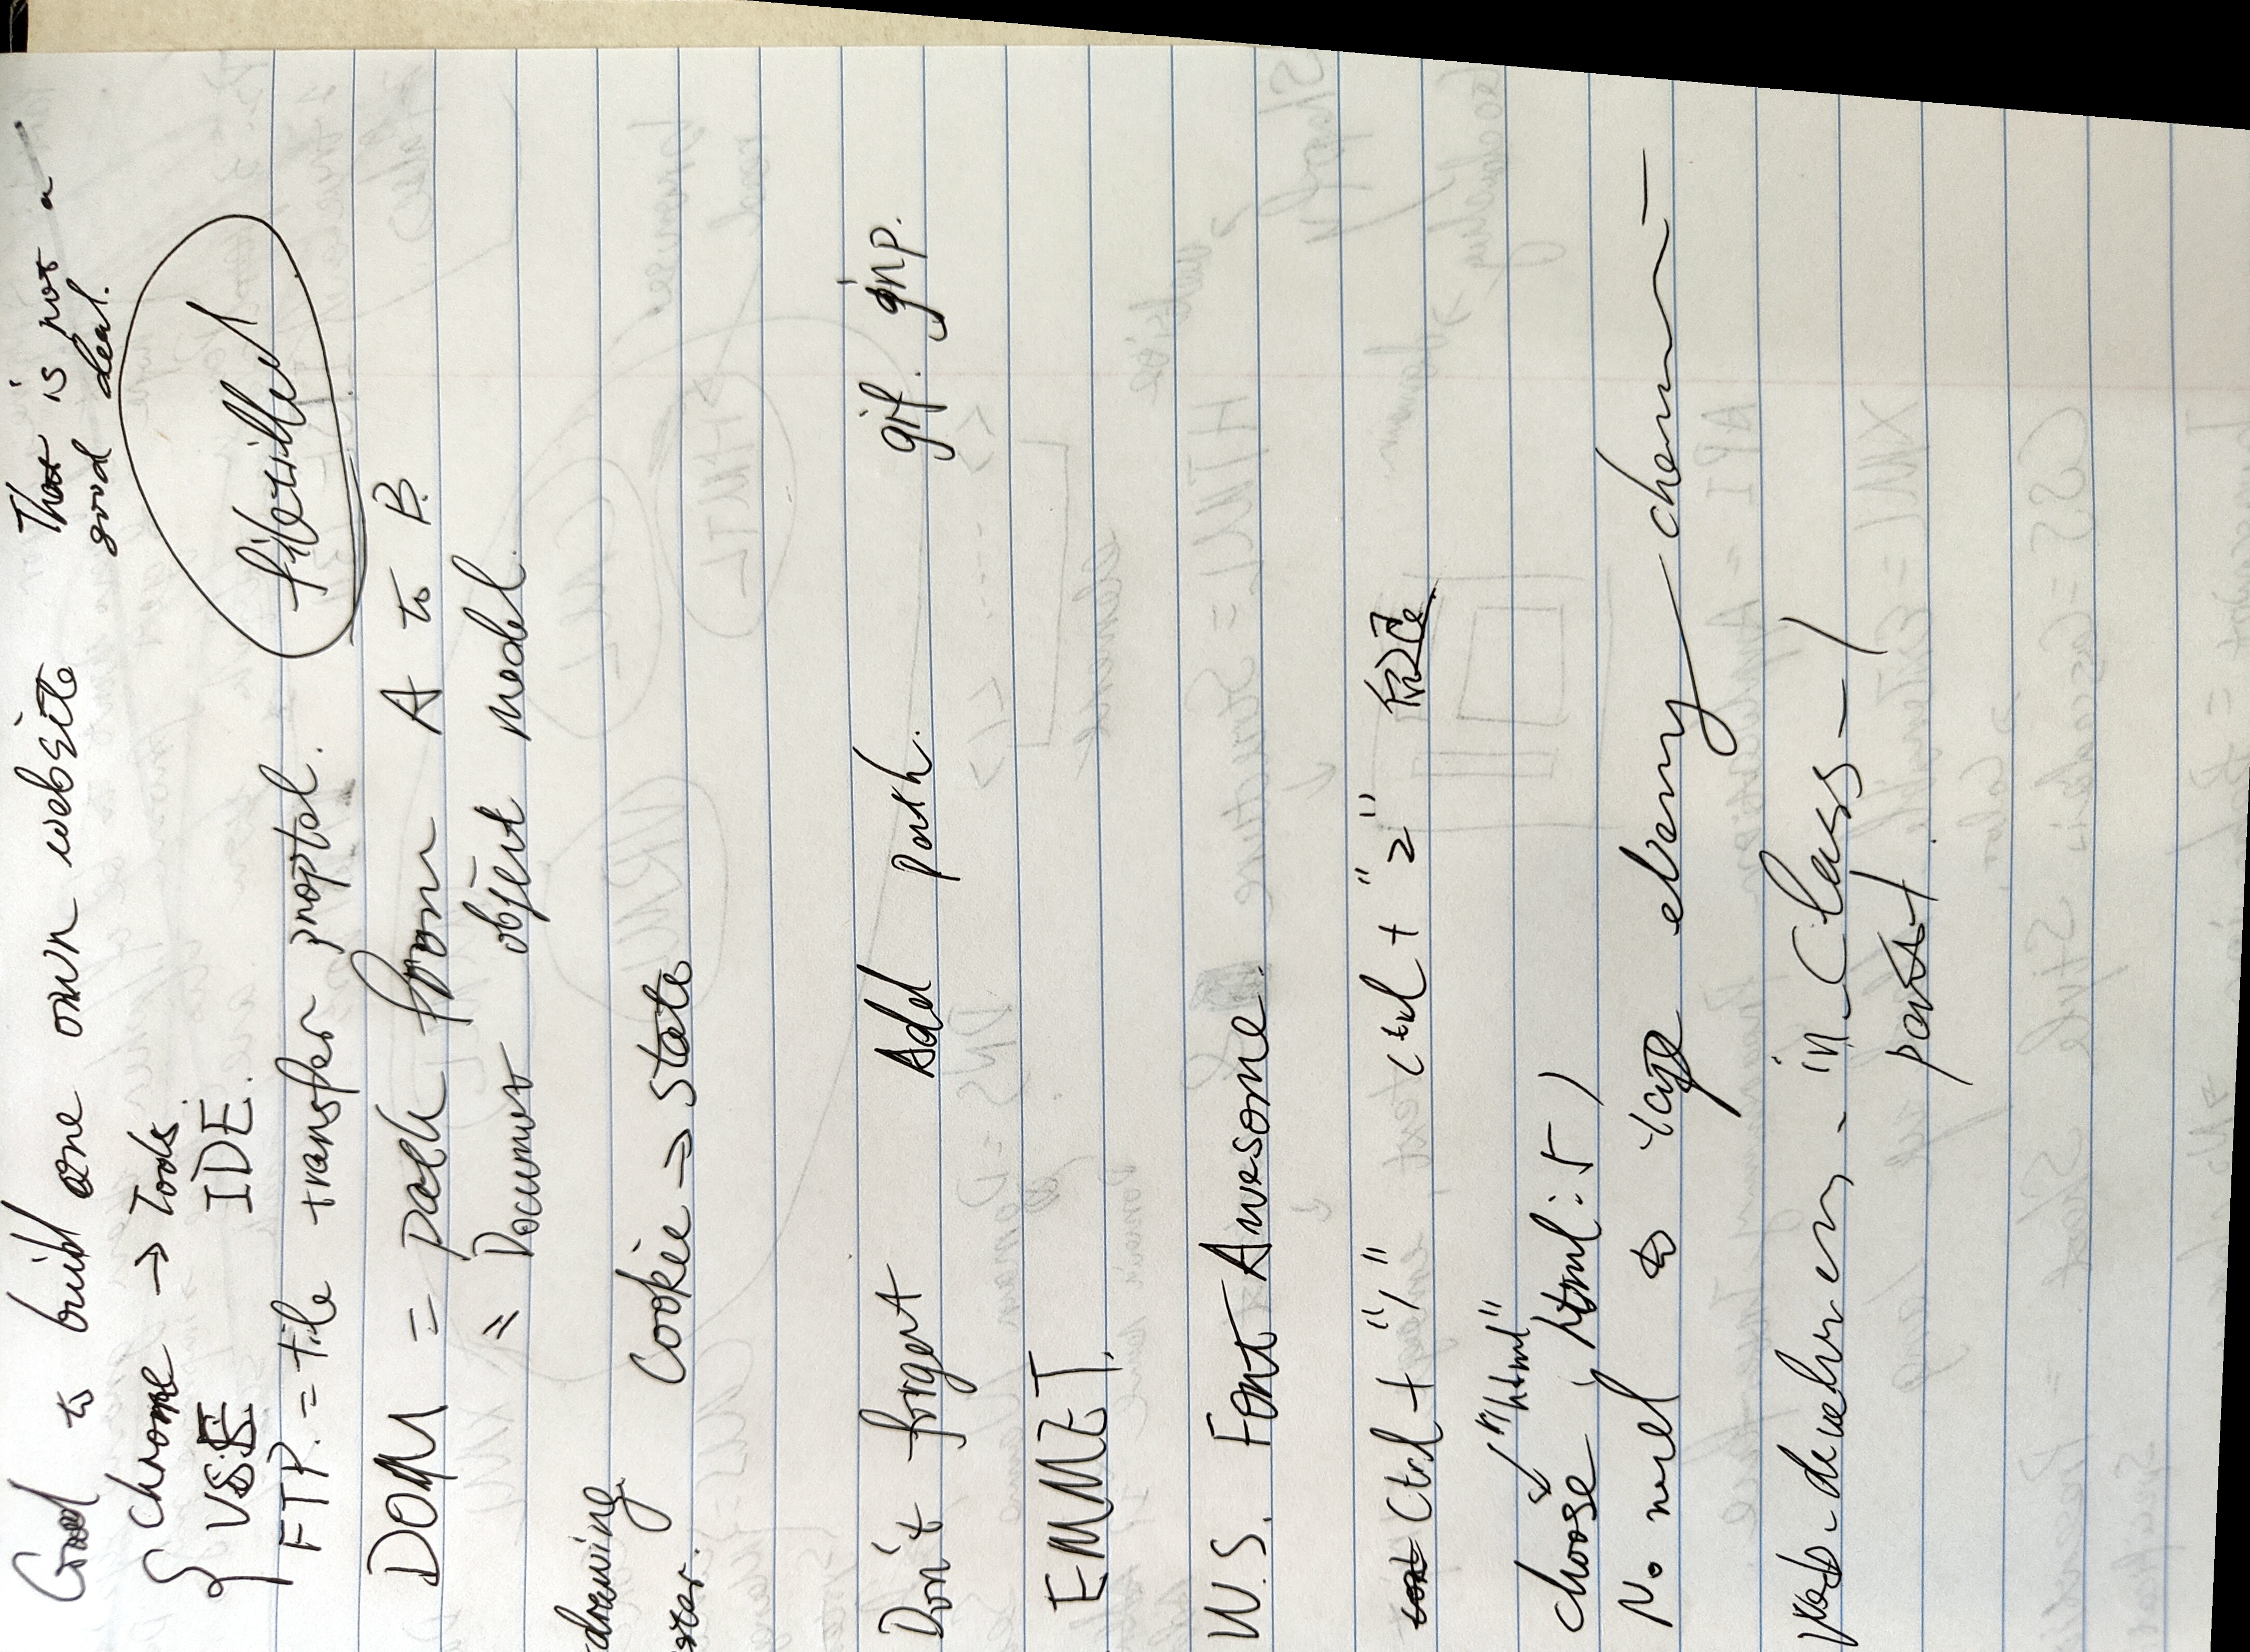 Good to build one own website That is not a
good deal.
{ chrome → Tools
VSE IDE.
filezilla
FTP. = file transfer proptol.
DOM = path from A to B.
= Document object model.
drawing
Cookie → state
Don't forget Add path. gif. gnp.
EMMET.
W.S. Font Awesome.
Ctrl + "/" Ctrl + "z"
"html"
choose html:5
No need to
web-develmen - in - Class - 1